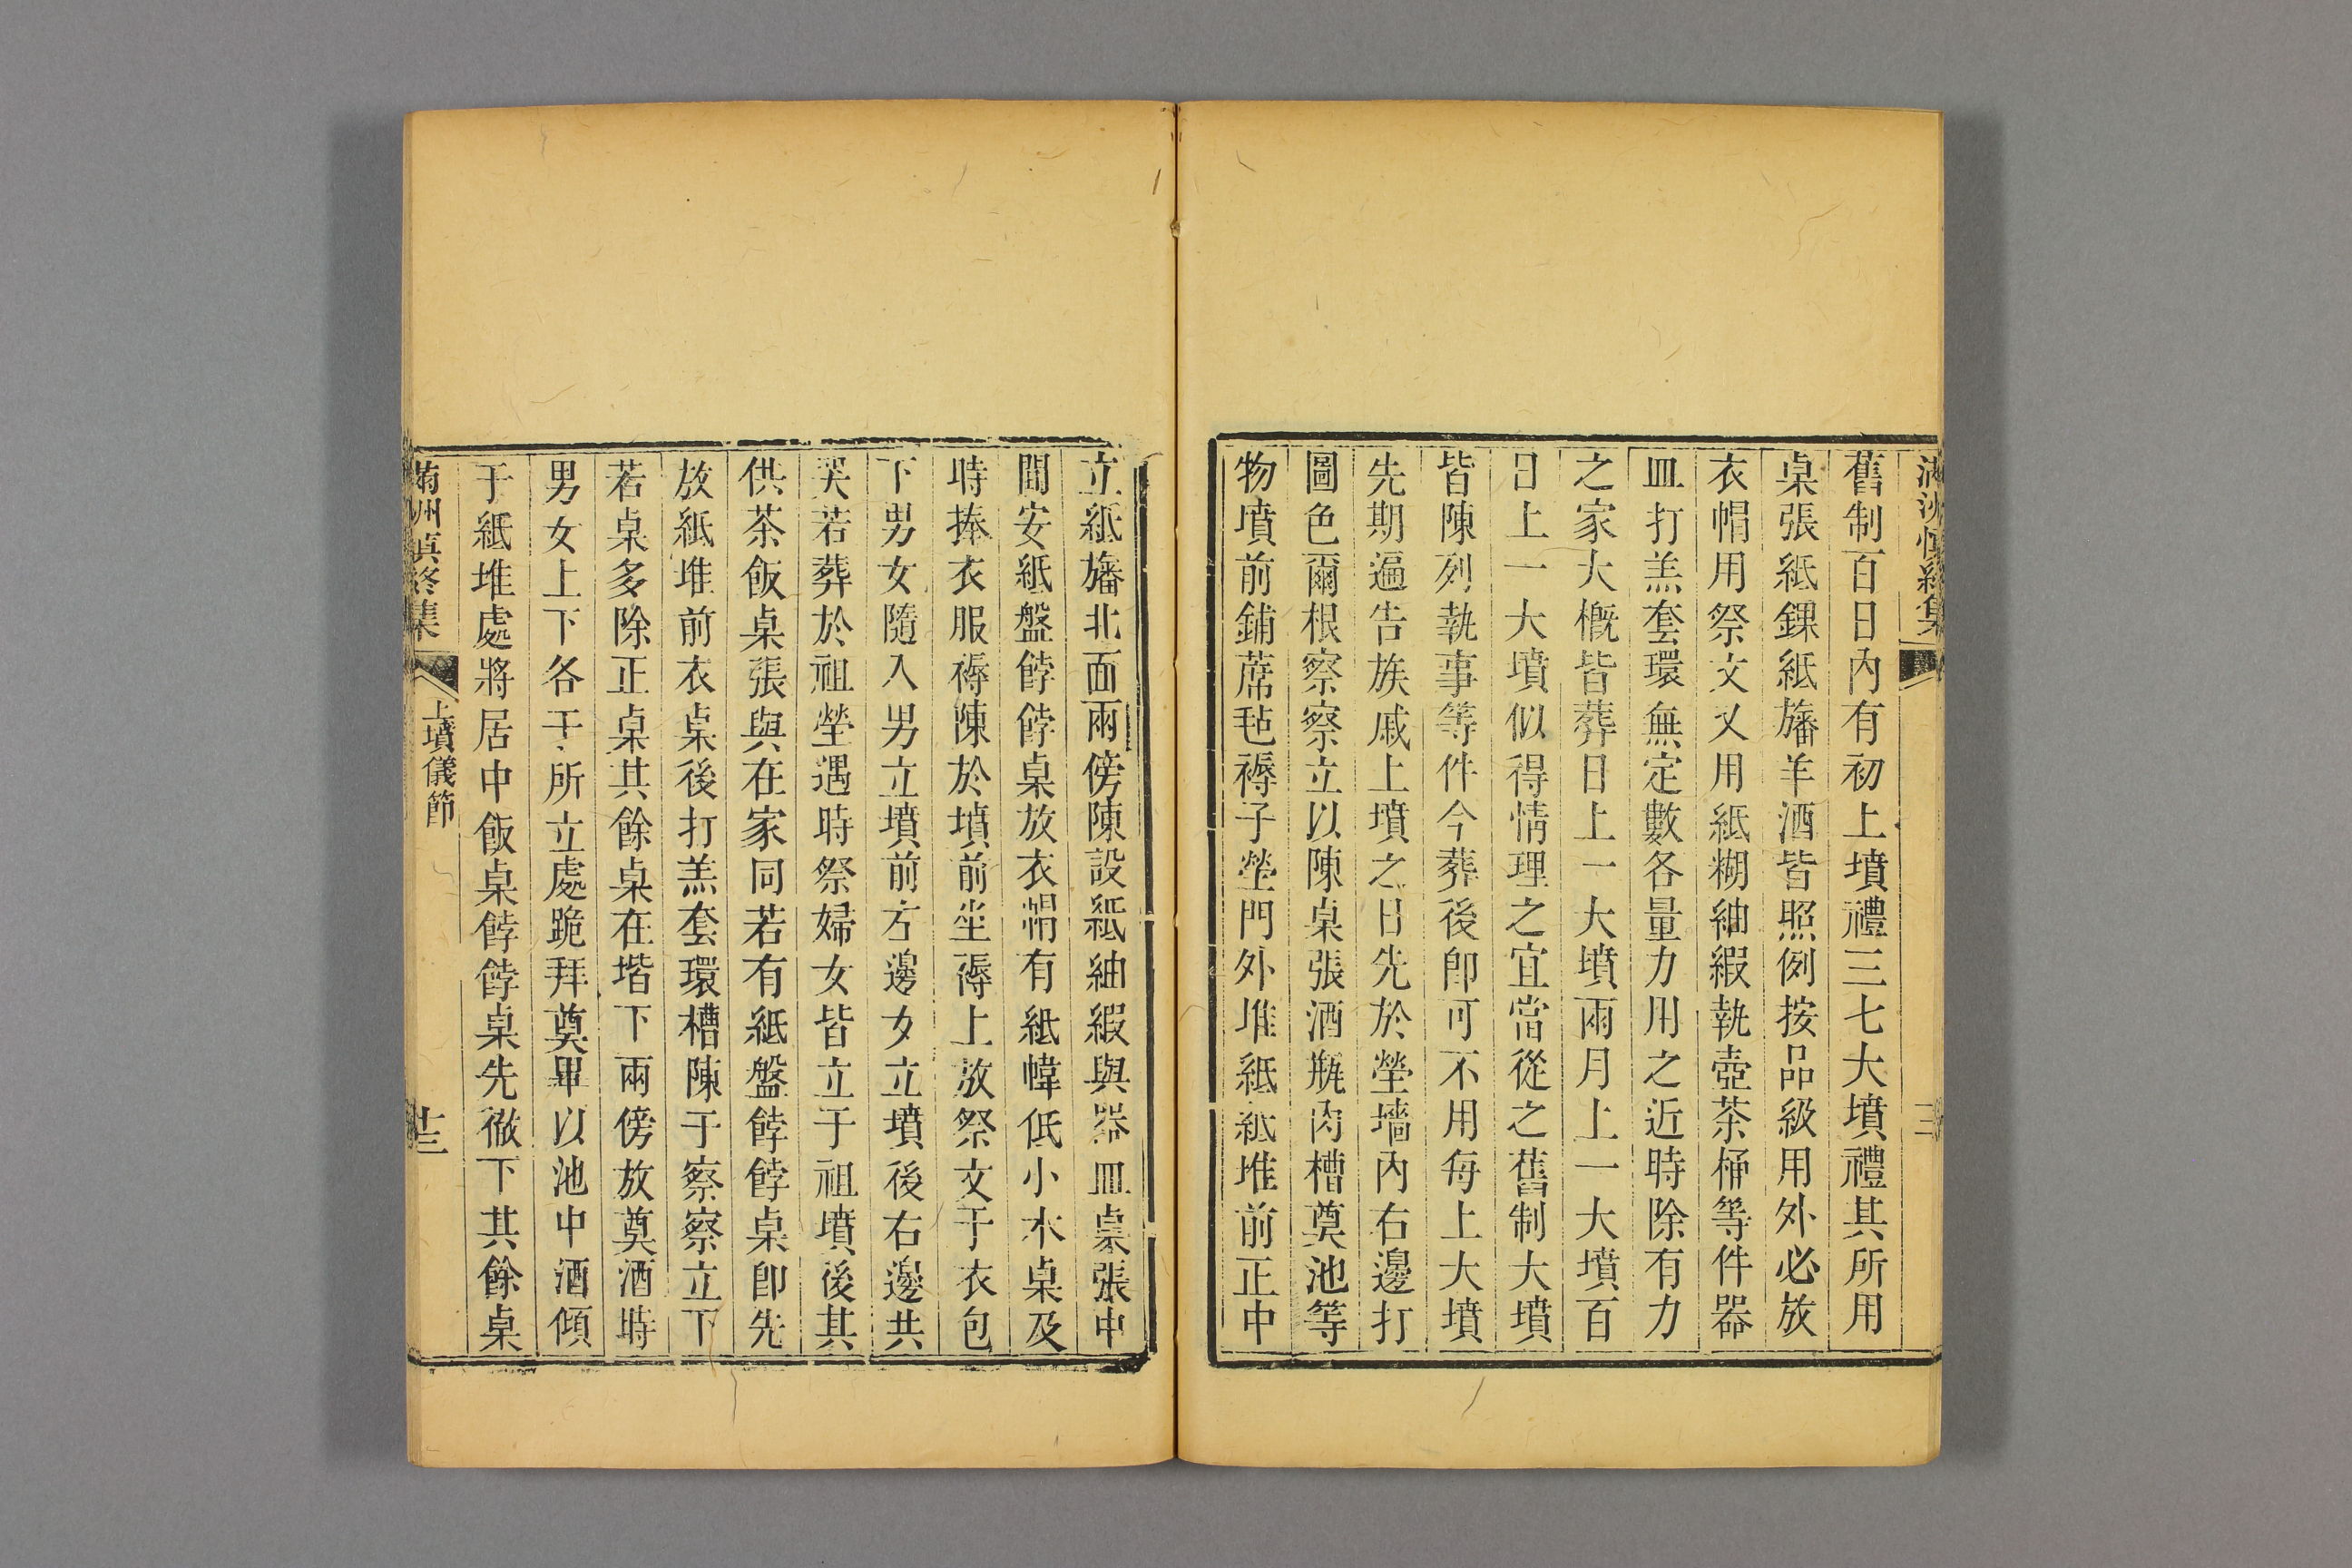 舊制百日內有初上墳禮三七大墳禮其所用
桌張紙錁紙旛羊酒皆照例按品級用外必放
衣帽用祭文又用紙糊紬緞執壺茶桶等件器
皿打羔套環無定數各量力用之近時除有力
之家大概皆葬日上一大墳兩月上一大墳百
日上一大墳似得情理之宜當從之舊制大墳
皆陳列執事等件今葬後卽可不用每上大墳
先期遍告族戚上墳之日先於塋墻內右邊打
圖色爾根察察立以陳桌張酒瓶肉槽奠池等
物墳前鋪蓆毡褥子塋門外堆紙紙堆前正中
立紙旛北面兩傍陳設紙紬緞與器皿桌張中
間安紙盤餑餑桌放衣帽有紙幃低小木桌及
時捧衣服褥陳於墳前坐褥上放祭文于衣包
下男女隨入男立墳前左邊女立墳後右邊共
哭若葬於祖塋遇時祭婦女皆立于祖墳後其
供茶飯桌張與在家同若有紙盤餑餑桌卽先
放紙堆前衣桌後打羔套環槽陳于察察立下
若桌多除正桌其餘桌在堦下兩傍放奠酒時
男女上下各于所立處跪拜奠畢以池中酒傾
于紙堆處將居中飯桌餑餑桌先徹下其餘桌
滿洲慎終集
上墳儀節
十三